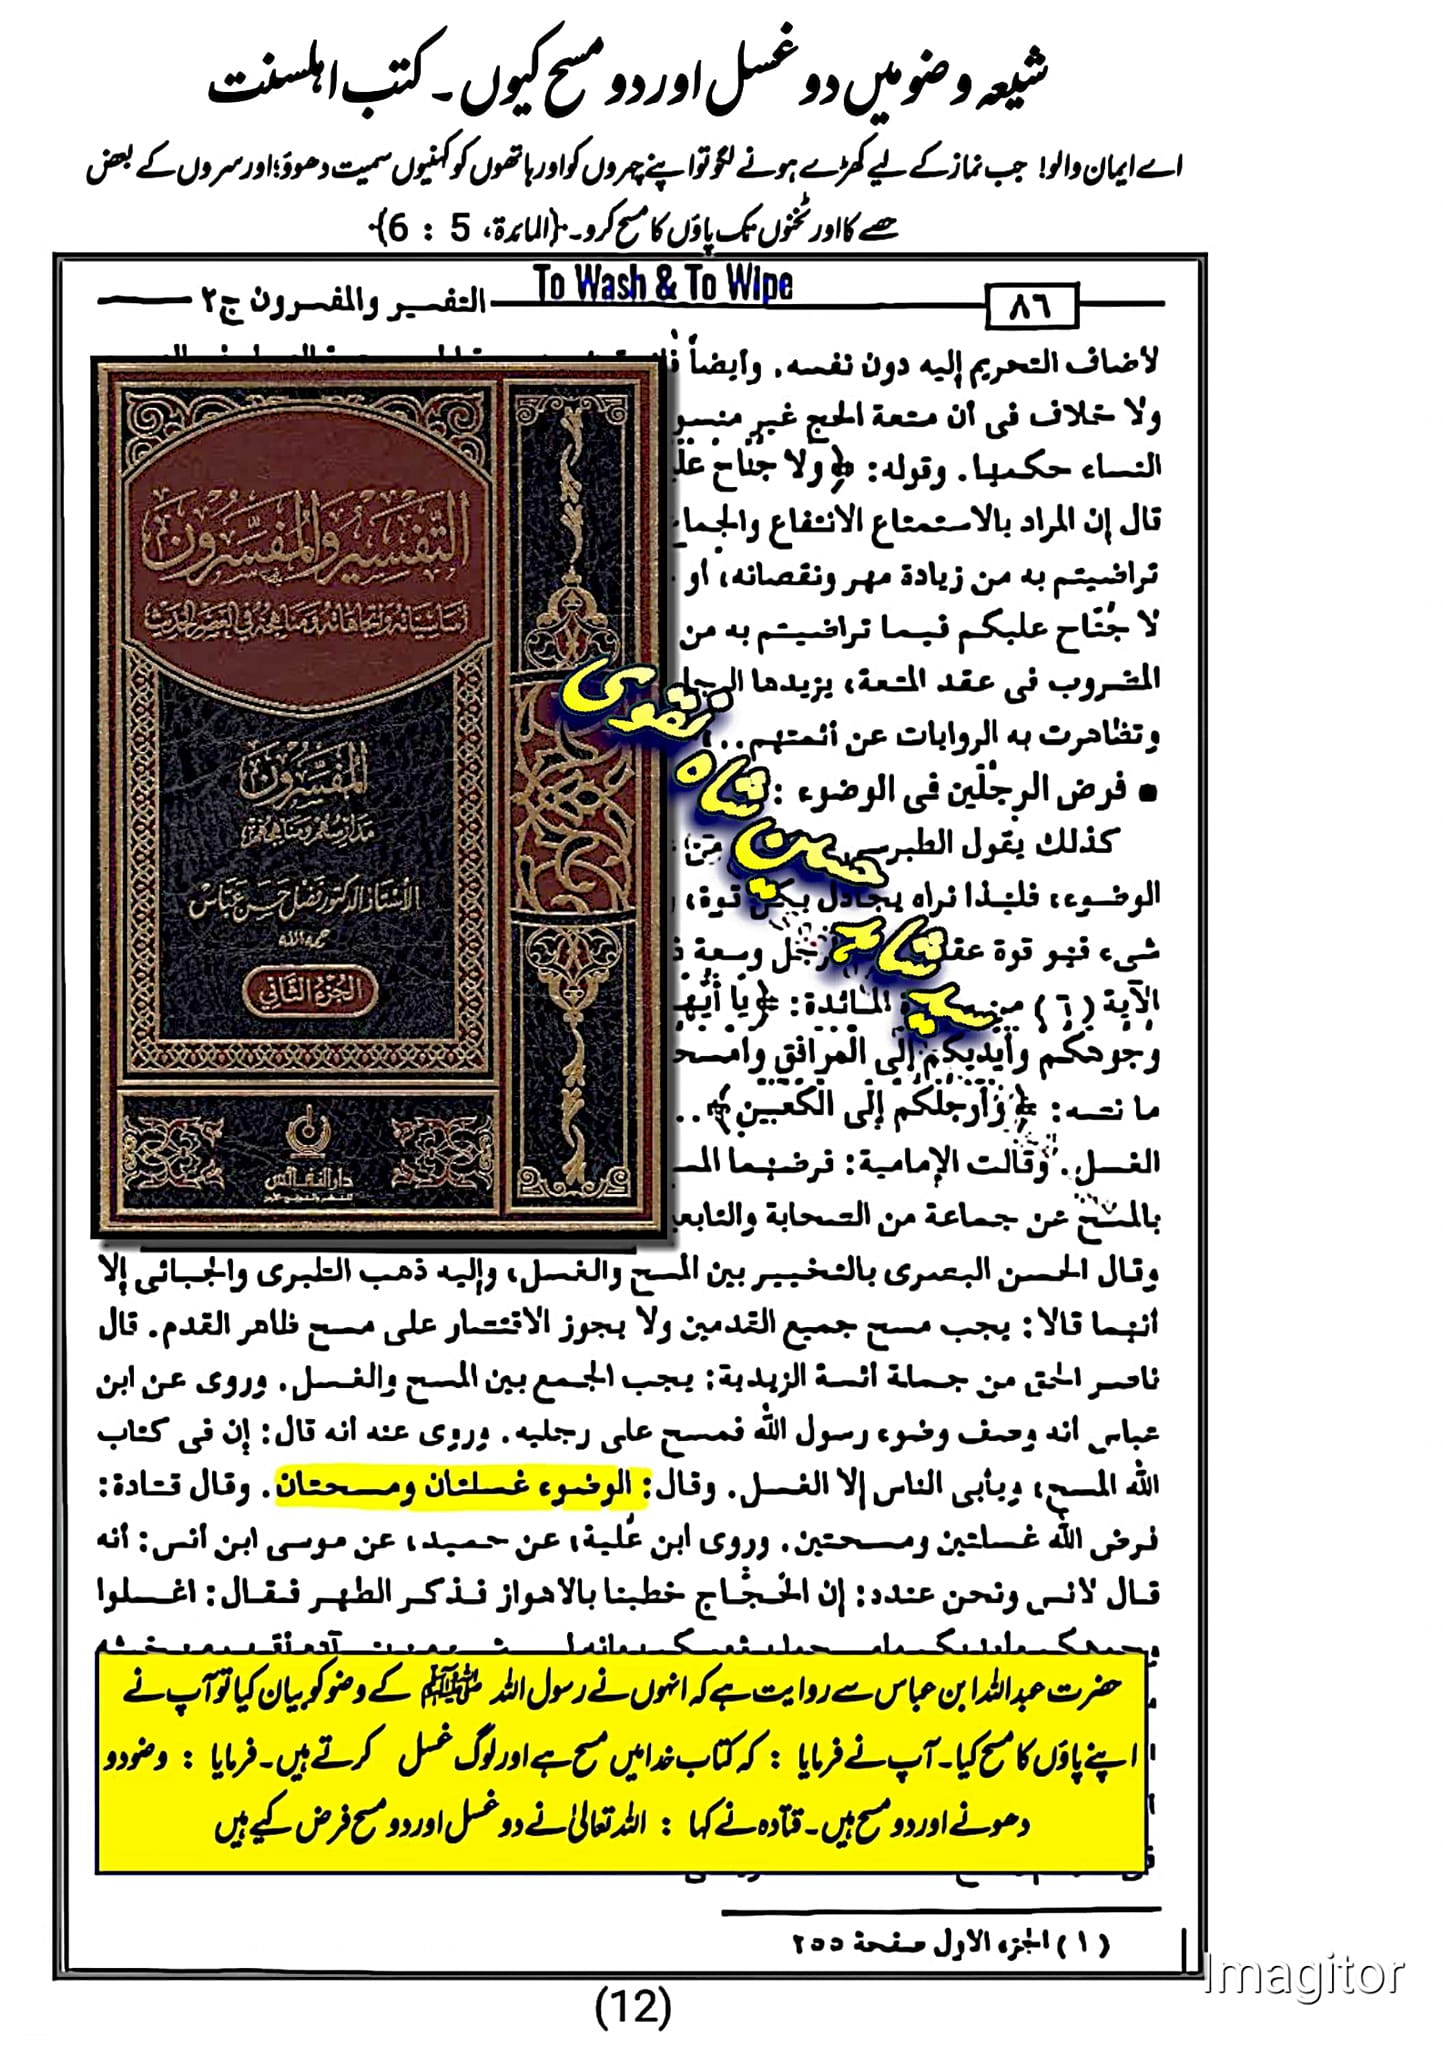 شیعہ وضو میں دو غسل اور دو مسح کیوں۔ کتب اہلسنت
اے ایمان والو! جب نماز کے لیے کھڑے ہونے لگو تو اپنے چہروں کو اور ہاتھوں کو کہنیوں سمیت دھوؤ؛ اور سروں کے بعض
حصے کا اور ٹخنوں تک پاؤں کا مسح کرو۔{المائدۃ، 5 : 6}
To Wash & To Wipe
٨٦
التفسير والمفسرون ج٢
لأضاف التحريم إليه دون نفسه. وأيضاً
ولا خلاف فى أن متعة الحج غير
النساء حكمها. وقوله: ﴿ولا جُنَاحَ
قال إن المراد بالاستمتاع الانتفاع والجماع
تراضيتم به من زيادة مهر ونقصانه، أو
لا جُنَاح عليكم فيما تراضيتم به من
المضروب فى عقد المتعة، يزيدها الرجل
وتظاهرت به الروايات عن أئمتهم..
■ فرض الرِجْلَين فى الوضوء :
كذلك يقول الطبرسى
الوضوء، فلهذا نراه يجادل بكل قوة،
شىء فهو قوة عقلية الرجل وسعة
الآية (٦) من سورة المائدة: ﴿يَا أَيُّهَا
وُجُوهَكُم وأيديكم إلى المَرَافِقِ وامسحوا
ما نصه: ﴿وَأَرْجُلَكُم إلى الكَعْبَين﴾..
الغسل. وقالت الإمامية: فرضهما
بالمسح عن جماعة من الصحابة والتابعين
وقال الحسن البصرى بالتخيير بين المسح والغسل، وإليه ذهب الطبرى والجبائى إلا
أنهما قالا: يجب مسح جميع القدمين ولا يجوز الاقتصار على مسح ظاهر القدم. قال
ناصر الحق من جملة أئمة الزيدية: يجب الجمع بين المسح والغسل. وروى عن ابن
عباس أنه وصف وضوء رسول الله فمسح على رجليه. وروى عنه أنه قال: إن فى كتاب
الله المسح، ويأبى الناس إلا الغسل. وقال: الوضوء غسلتان ومسحتان. وقال قتادة:
فرض الله غسلتين ومسحتين. وروى ابن عُلية، عن حميد، عن موسى ابن أنس: أنه
قال لأنس ونحن عنده: إن الحَجَّاج خطبنا بالأهواز فذكر الطهر فقال: اغسلوا
التفسير والمفسرون
أساسياته واتجاهاته ومناهجه في العصر الحديث
المفسرون
مدارسهم ومناهجهم
الأستاذ الدكتور فضل حسن عباس
رحمه الله
الجزء الثاني
دار النفائس
للنشر والتوزيع
سید شاہد حسین شاہ نقوی
حضرت عبداللہ ابن عباس سے روایت ہے کہ انہوں نے رسول اللہ ﷺ کے وضو کو بیان کیا تو آپ نے
اپنے پاؤں کا مسح کیا۔ آپ نے فرمایا : کہ کتاب خدا میں مسح ہے اور لوگ غسل کرتے ہیں۔ فرمایا : وضو دو
دھونے اور دو مسح ہیں۔ قتادہ نے کہا : اللہ تعالیٰ نے دو غسل اور دو مسح فرض کیے ہیں
(١) الجزء الأول صفحة ٢٥٥
Imagitor
(12)